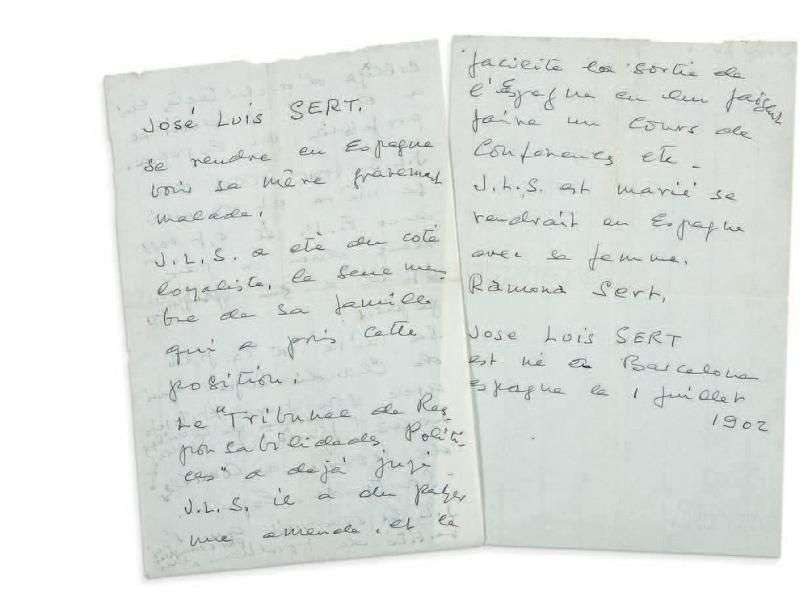 José Luis SERT.
se rendre en Espagne
voir sa mère gravement
malade.
J.L.S. a eté du coté
loyaliste, le seul mem
bre de sa famille
qui a pris cette
position.
Le "Tribunal de Res
ponsabilidades Politi
cas" a dejà jugé
J.L.S. il a du payer
une amende. et le
facilite la sortie de
l'Espagne en lui faisant
faire un cours de
Conferences etc -
J.L.S. est marié se
rendrait en Espagne
avec sa femme.
Ramona Sert.
José Luis SERT
est né à Barcelona
Espagne le 1 juillet
1902